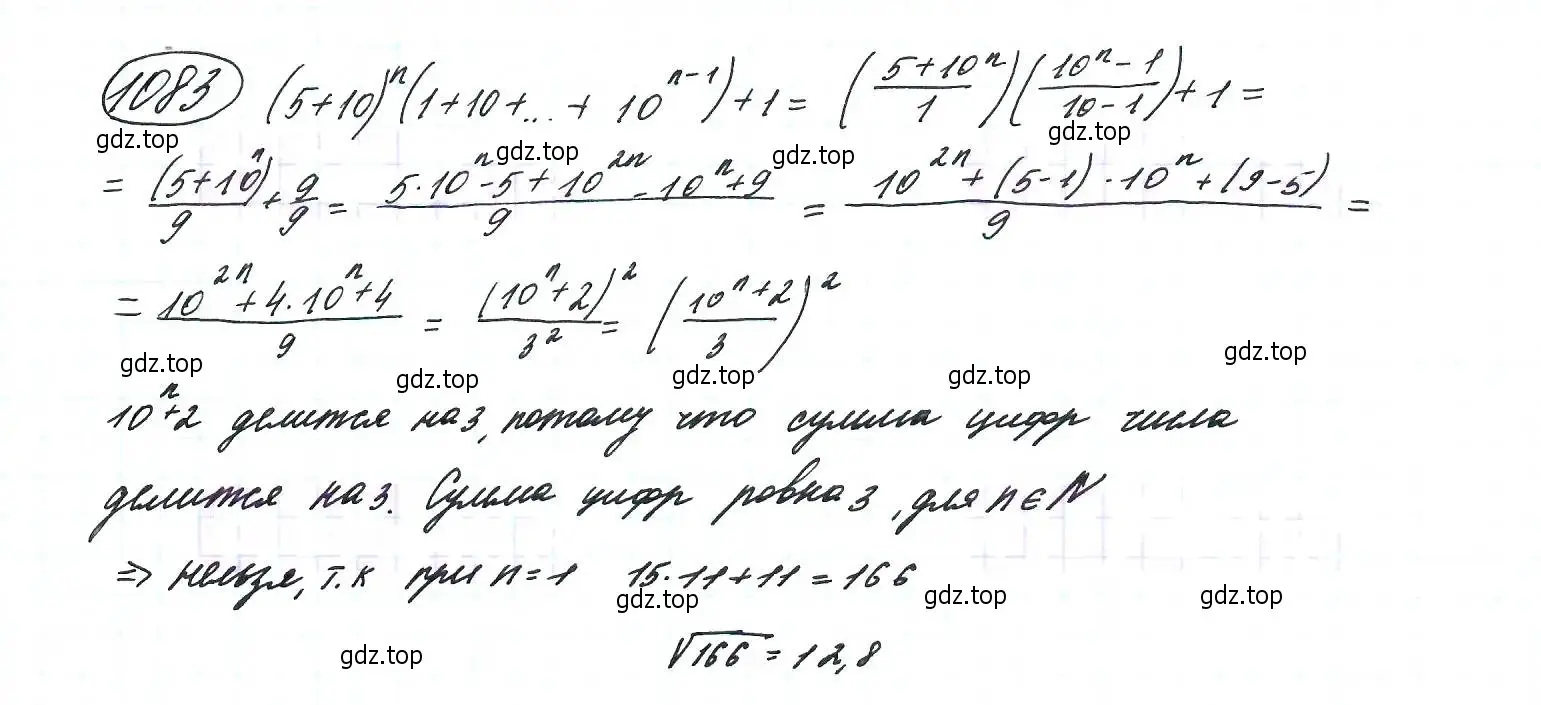 1083 (5+10)^n (1+10+...+ 10^{n-1})+1 = (\frac{5+10^n}{1})(\frac{10^n-1}{10-1})+1 =
gdz.top gdz.top gdz.top gdz.top
= \frac{(5+10^n)}{9}+\frac{9}{9} = \frac{5·10^n-5+10^{2n}-10^n+9}{9} = \frac{10^{2n}+(5-1)·10^n+(9-5)}{9} =
= \frac{10^{2n}+4·10^n+4}{9} = \frac{(10^n+2)^2}{3^2} = (\frac{10^n+2}{3})^2
gdz.top gdz.top gdz.top gdz.top gdz.top
10^n+2 делится на 3, потому что сумма цифр числа
делится на 3. Сумма цифр ровна 3, для n ∈ N
⇒ нельзя, т.к при n=1 15·11+11=166
gdz.top gdz.top gdz.top
gdz.top √166 = 12,8